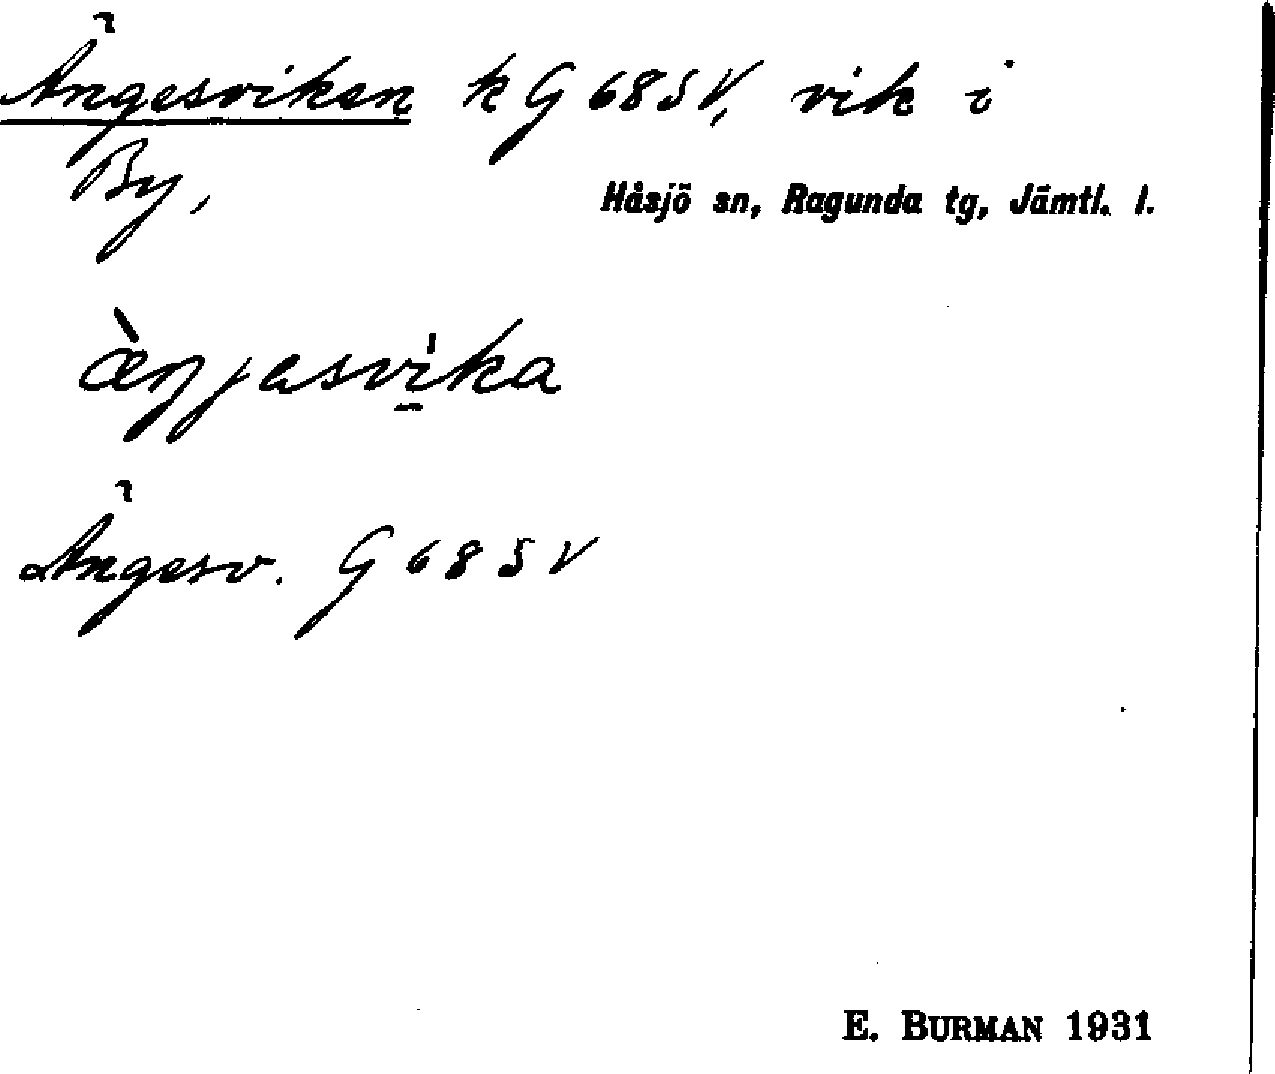 Ängesviken k G 68 SV, vik i
By,
Håsjö sn, Ragunda tg, Jämtl. l.
æ̀ŋjasvi̱ka
Ängesv. G 68 SV
E. BURMAN 1931